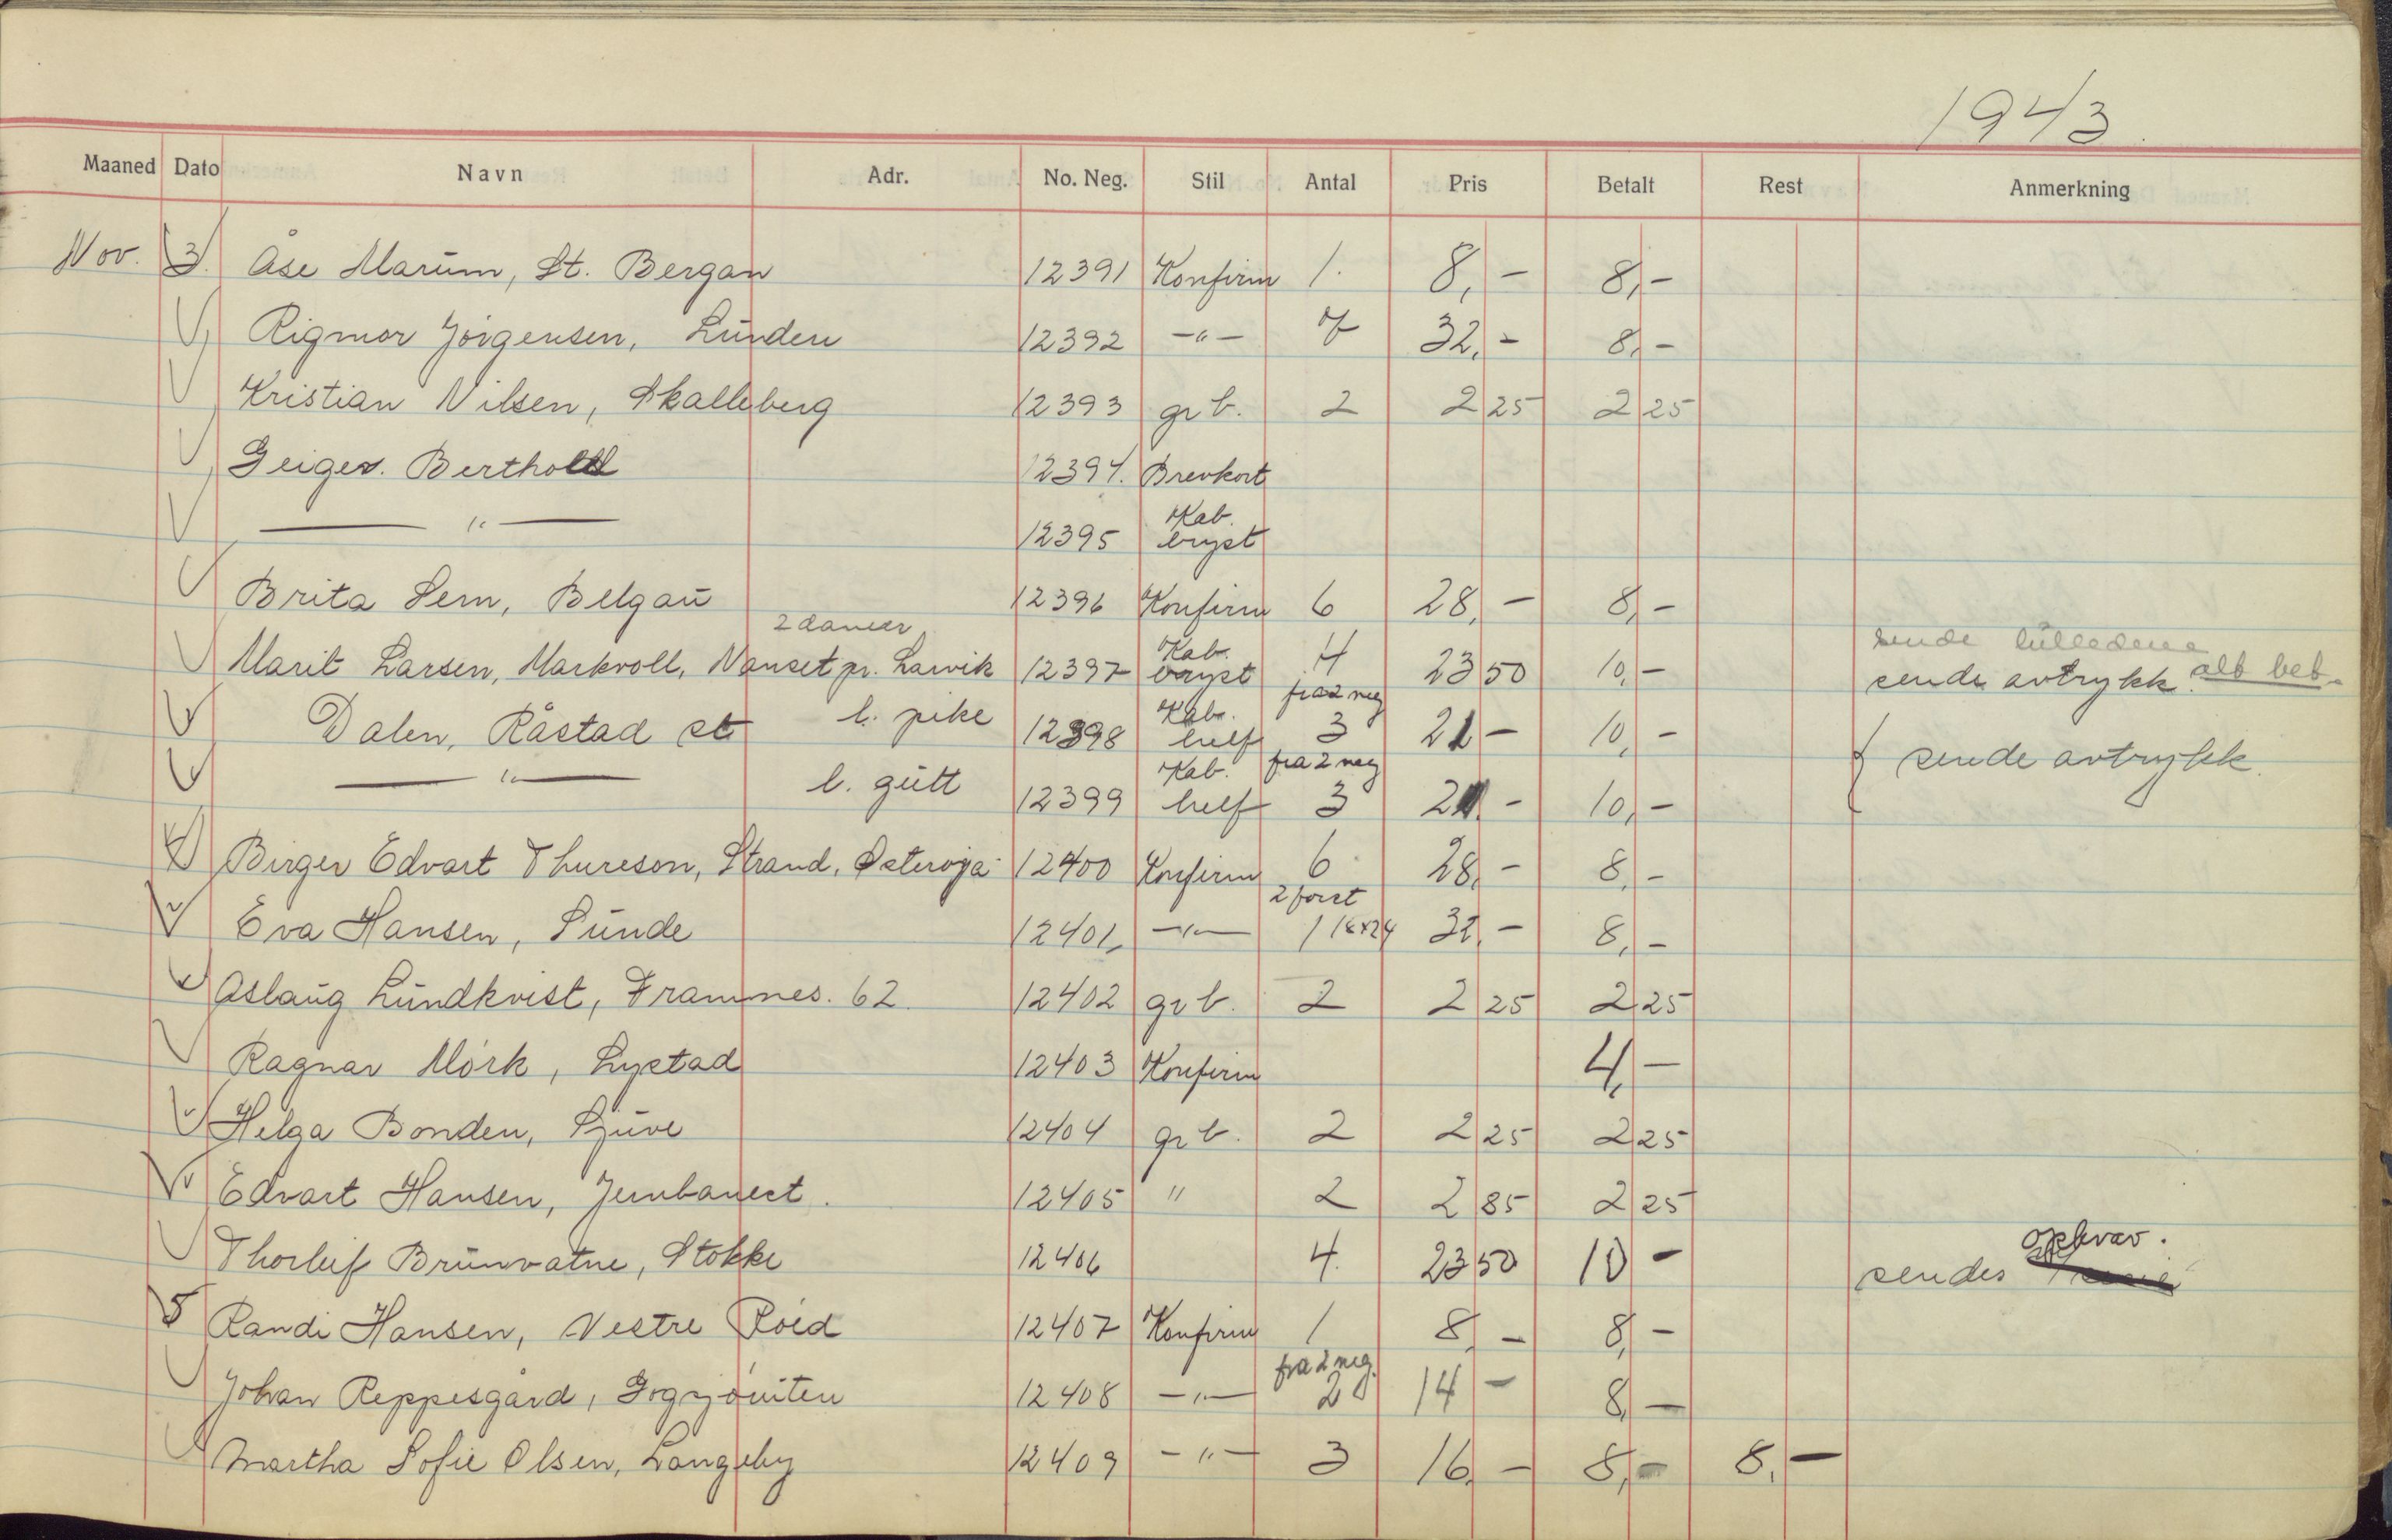 1943.
Maaned Dato Navn Adr. No. Neg. Stil Antal Pris Betalt Rest Anmerkning
Nov. 3. Åse Marum, St. Bergan 12391 Konfirm 1. 8,- 8,-
Rigmor Jörgensen, Lunden 12392 -"- 7 32,- 8,-
Kristian Nilsen, Skalleberg 12393 gr b. 2 2 25 2 25
Geiger. Berthold 12394. Brevkort
-"- 12395 Kab. bryst
Brita Sem, Belgau 12396 Konfirm 6 28,- 8,-
2 damer sende
Marit Larsen, Markvoll, Nanset pr. Larvik 12397 Kab. bryst 4 23 50 10,- sende avtrykk. alt bet.
Dalen, Råstad st l. pike 12398 Kab. helf fra 2 neg 3 21 - 10,- sende avtrykk.
-"- l. gutt 12399 Kab. helf fra 2 neg 3 21 - 10,-
4 Birger Edvart Thureson, Strand, Österöya 12400 Konfirm 6 28,- 8,-
Eva Hansen, Sunde 12401, -"- 2 forst 1 18x24 32,- 8,-
Aslaug Lundkvist, Framnes. 62. 12402 gr b. 2 2 25 2 25
Ragnar Mörk, Lystad 12403 Konfirm 4,-
Helga Bonden, Sjuve 12404 gr b. 2 2 25 2 25
Edvart Hansen, Jernbanest. 12405 " 2 2 85 2 25
Thorleif Brunvatne, Stokke 12406 4. 23 50 10 - sendes opkrav.
5 Randi Hansen, Vestre Röed 12407 Konfirm 1 8,- 8,-
Johan Reppesgård, 12408 -"- fra 2 neg. 2 14 - 8,-
Martha Sofie Olsen, Langeby 12409 -"- 3 16,- 8,- 8,-